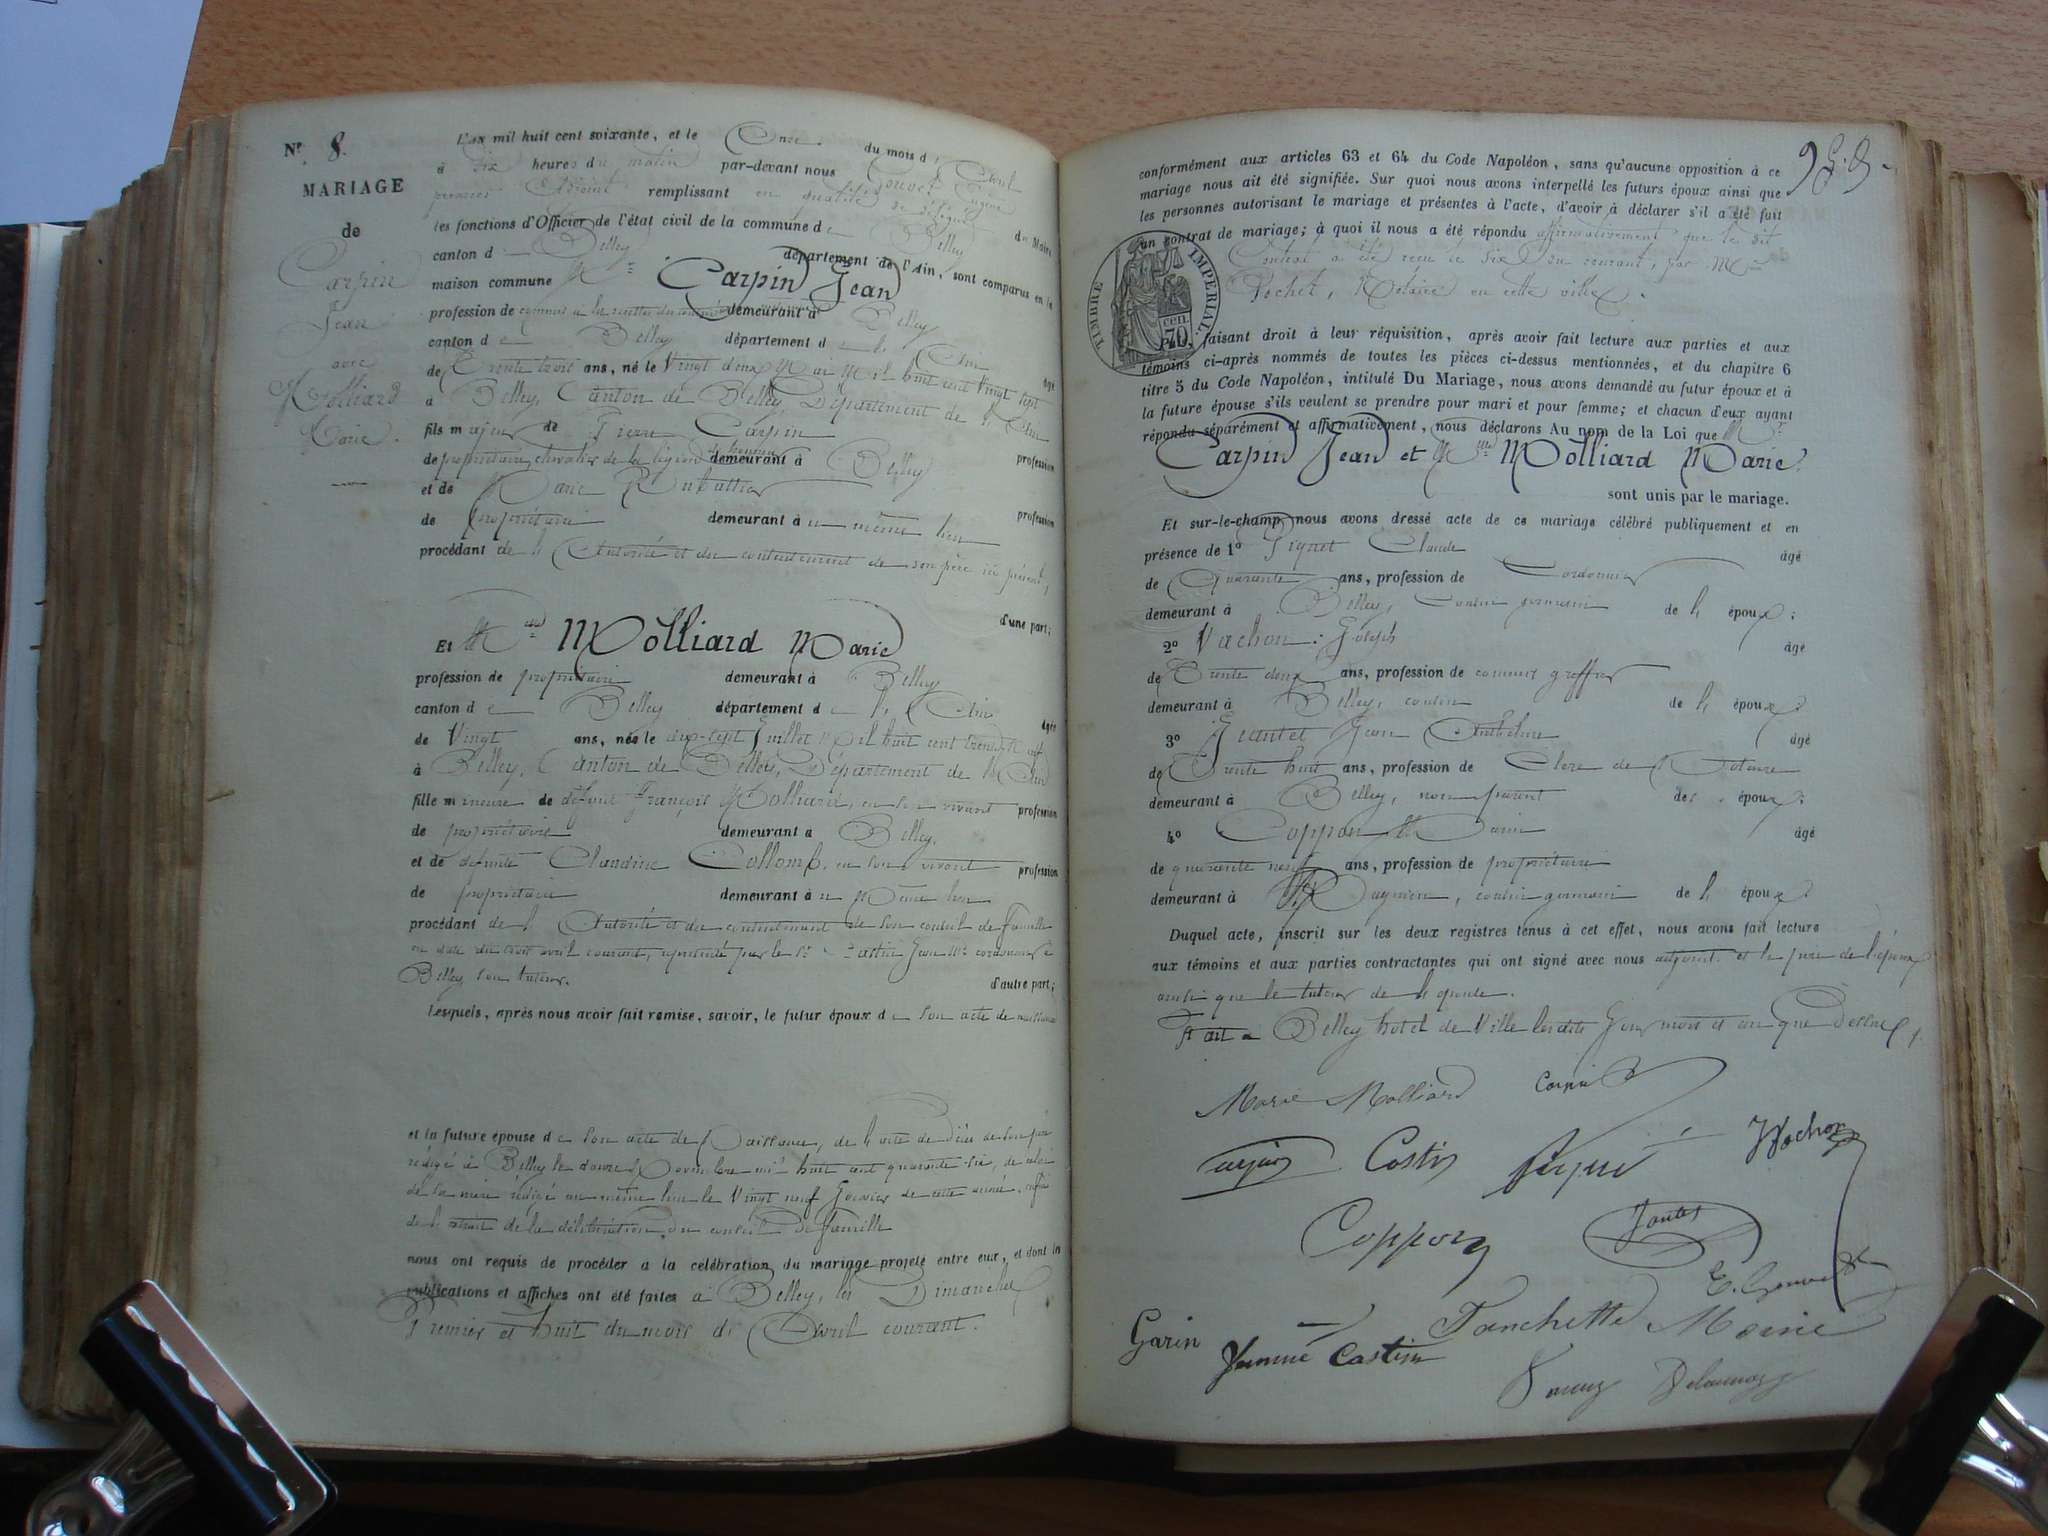 Nº 8.
MARIAGE
de
Carpin
Jean
avec
Molliard
Marie.
L'an mil huit cent soixante, et le Onze du mois d' Avril
à Dix heures du matin par-devant nous Gouvet Eugène
premier Adjoint remplissant en qualité de délégué du Maire
les fonctions d'Officier de l'état civil de la commune de Belley
canton d Belley département de l'Ain, sont comparus en la
maison commune Mr Carpin Jean
profession de commis à la recette demeurant à Belley
canton de Belley département de l'Ain âgé
de Trente trois ans, né le Vingt deux Mai Mil huit cent Vingt sept
à Belley, Canton de Belley, Département de l'Ain
fils majeur de Pierre Carpin profession
de propriétaire, chevalier de la légion d'honneur demeurant à Belley
et de Marie profession
de propriétaire demeurant au même lieu
procédant de l'Autorité et du contentement de son père ici présent,
d'une part;
Et Mlle Molliard Marie
profession de propriétaire demeurant à Belley
canton de Belley département de l'Ain âgée
de Vingt ans, née le dix-sept Juillet Mil huit cent trente neuf
à Belley, Canton de Belley, Département de l'Ain
fille mineure de défunt François Molliard, en son vivant profession
de propriétaire demeurant à Belley,
et de défunte Claudine Collomb, en son vivant profession
de propriétaire demeurant au Même lieu
procédant de l'Autorité et du contentement de son conseil de famille
en date du trois avril courant, représenté par le Sr Castin Jean cordonnier à
Belley son tuteur. d'autre part;
Lesquels, après nous avoir fait remise, savoir, le futur époux de son acte de naissance
et la future épouse de son acte de Naissance, de l'acte de Décès de son père
rédigé à Belley le douze Novembre mil huit cent quarante six, de celui
de sa mère rédigé au même lieu le Vingt neuf Janvier de cette année, enfin
de l'extrait de la délibération du conseil de famille
nous ont requis de procéder à la célébration du mariage projeté entre eux, et dont les
publications et affiches ont été faites à Belley, les Dimanches
Premier et huit du mois d' Avril courant.
conformément aux articles 63 et 64 du Code Napoléon, sans qu'aucune opposition à ce
mariage nous ait été signifiée. Sur quoi nous avons interpellé les futurs époux ainsi que
les personnes autorisant le mariage et présentes à l'acte, d'avoir à déclarer s'il a été fait
un contrat de mariage; à quoi il nous a été répondu affirmativement que le dit
Contrat a été reçu le six du courant, par Me
Pochet, Notaire en cette ville.
TIMBRE IMPÉRIAL.
cen. 70
faisant droit à leur réquisition, après avoir fait lecture aux parties et aux
témoins ci-après nommés de toutes les pièces ci-dessus mentionnées, et du chapitre 6
titre 5 du Code Napoléon, intitulé Du Mariage, nous avons demandé au futur époux et à
la future épouse s'ils veulent se prendre pour mari et pour femme; et chacun d'eux ayant
répondu séparément et affirmativement, nous déclarons Au nom de la Loi que Mr
Carpin Jean et Mlle Molliard Marie
sont unis par le mariage.
Et sur-le-champ nous avons dressé acte de ce mariage célébré publiquement et en
présence de 1º Piquet Claude âgé
de Quarante ans, profession de Cordonnier
demeurant à Belley, Cousin germain de l'époux;
2º Vachon Joseph âgé
de Trente deux ans, profession de commis greffier
demeurant à Belley, cousin de l'époux;
3º Jeantet Jean Anthelme âgé
de Trente huit ans, profession de Clerc de Notaire
demeurant à Belley, non parent des époux;
4º Coppon âgé
de quarante neuf ans, profession de propriétaire
demeurant à cousin germain de l'époux
Duquel acte, inscrit sur les deux registres tenus à cet effet, nous avons fait lecture
aux témoins et aux parties contractantes qui ont signé avec nous adjoint et le père de l'époux
ainsi que le tuteur de l'épouse.
Fait à Belley hotel de Ville les dits Jour mois et an que Dessus
Marie Molliard Carpin
Carpin Castin Piqué Vachon
Coppon Jantet
E. Gouvet
Garin Jeanne Castin Fanchette Moine
Fanny Delaunay